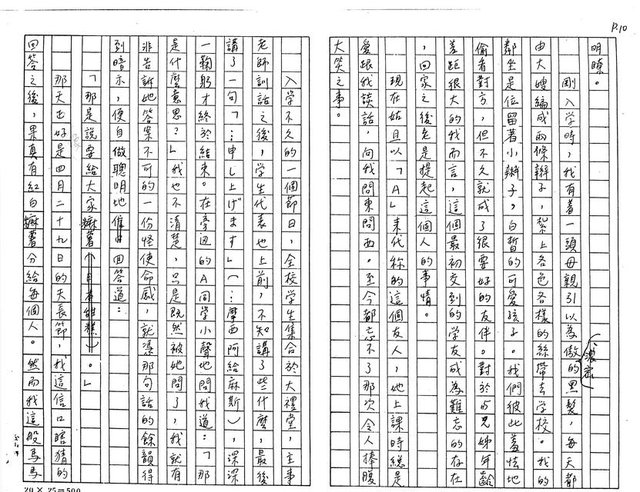 P.10
明瞭。
剛入學時，我有著一頭母親引以為傲的濃密的黑髮，每天都
由大嫂編成兩條辮子，紮上各色各樣的絲帶去學校。我的
鄰坐是位留著小辮子，白皙的可愛孩子。我們彼此羞怯地
偷看對方，但不久就成了很要好的友伴。對於與兄姊年齡
差距很大的我而言，這個最初交到的學友成為難忘的存在
，回家之後老是提起這個人的事情。
現在姑且以「A」來代稱的這個友人，她上課時總是
愛跟我談話，向我問東問西。至今都忘不了那次令人捧腹
大笑之事。
入學不久的一個節日，全校學生集合於大禮堂，主事
老師訓話之後，學生代表也上前，不知講了些什麼，最後
講了一句「：申し上げます」（：摩西阿給麻斯），深深
一鞠躬才終於結束。在旁邊的A同學小聲地問我道：「那
是什麼意思？」我也不清楚，只是既然被她問了，我就有
非告訴她答案不可的一份怪使命感，就憑那句話的餘韻得
到暗示，便自做聰明地回答道：
「那是說要給大家麻薯。」
那天正好是四月二十九日的天長節，我這信口瞎猜的
回答之後，果真有紅白麻薯分給每個人。然而我這股馬馬
20×25=500